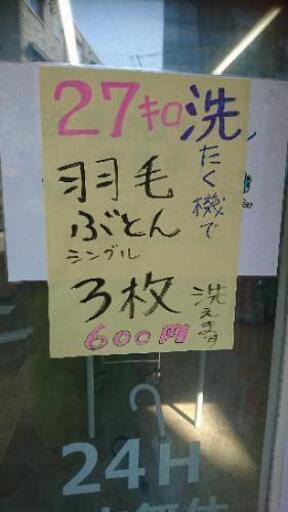 27キロ洗
たく機で
羽毛
ぶとん
シングル
3枚
洗えます
600円
24H